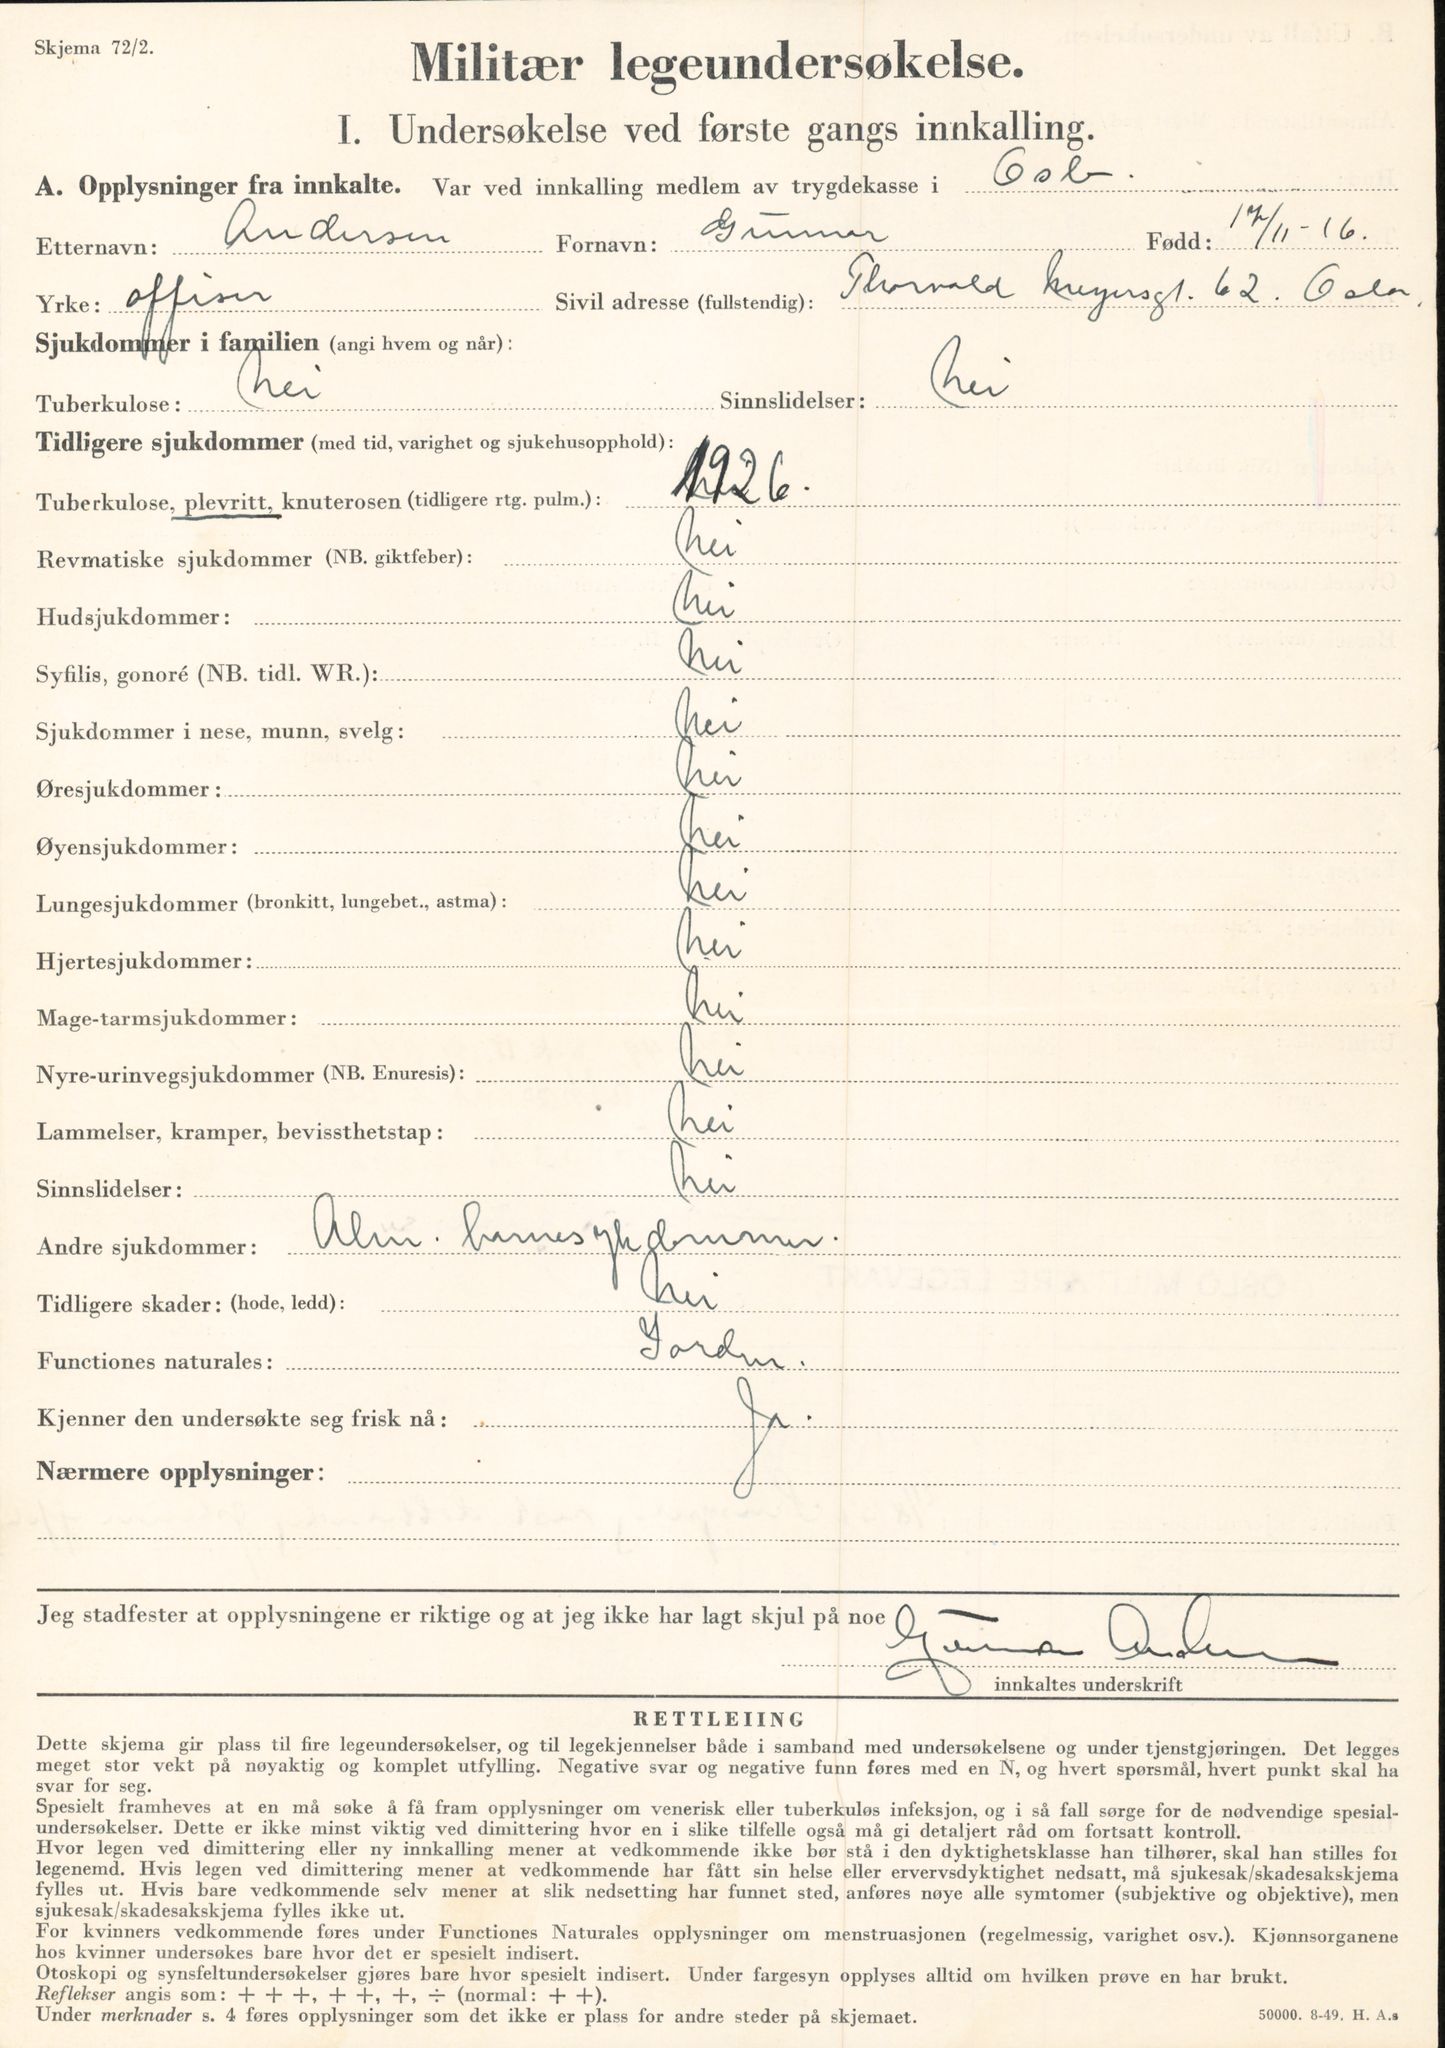 Skjema 72/2.
Militær legeundersøkelse.
I. Undersøkelse ved første gangs innkalling.
A. Opplysninger fra innkalte. Var ved innkalling medlem av trygdekasse i Oslo.
Etternavn: Andersen Fornavn: Gunnar Født: 17/11-16.
Yrke: offiser Sivil adresse (fullstendig): Thorvald Meyersgt. 62. Oslo.
Sjukdommer i familien (angi hvem og når):
Tuberkulose: Nei Sinnslidelser: Nei
Tidligere sjukdommer (med tid, varighet og sjukehusopphold):
Tuberkulose, plevritt, knuterosen (tidligere rtg. pulm.): 1926.
Revmatiske sjukdommer (NB. giktfeber): Nei
Hudsjukdommer: Nei
Syfilis, gonoré (NB. tidl. WR.): Nei
Sjukdommer i nese, munn, svelg: Nei
Øresjukdommer: Nei
Øyensjukdommer: Nei
Lungesjukdommer (bronkitt, lungebet., astma): Nei
Hjertesjukdommer: Nei
Mage-tarmsjukdommer: Nei
Nyre-urinvegsjukdommer (NB. Enuresis): Nei
Lammelser, kramper, bevissthetstap: Nei
Sinnslidelser: Nei
Andre sjukdommer: Alm. barnesykdommer.
Tidligere skader: (hode, ledd): Nei
Functiones naturales: I orden.
Kjenner den undersøkte seg frisk nå: Ja.
Nærmere opplysninger:
Jeg stadfester at opplysningene er riktige og at jeg ikke har lagt skjul på noe
Gunnar Andersen
innkaltes underskrift
RETTLEIING
Dette skjema gir plass til fire legeundersøkelser, og til legekjennelser både i samband med undersøkelsene og under tjenstgjøringen. Det legges
meget stor vekt på nøyaktig og komplet utfylling. Negative svar og negative funn føres med en N, og hvert spørsmål, hvert punkt skal ha
svar for seg.
Spesielt framheves at en må søke å få fram opplysninger om venerisk eller tuberkuløs infeksjon, og i så fall sørge for de nødvendige spesial-
undersøkelser. Dette er ikke minst viktig ved dimittering hvor en i slike tilfelle også må gi detaljert råd om fortsatt kontroll.
Hvor legen ved dimittering eller ny innkalling mener at vedkommende ikke bør stå i den dyktighetsklasse han tilhører, skal han stilles for
legenemd. Hvis legen ved dimittering mener at vedkommende har fått sin helse eller ervervsdyktighet nedsatt, må sjukesak/skadesakskjema
fylles ut. Hvis bare vedkommende selv mener at slik nedsetting har funnet sted, anføres nøye alle symtomer (subjektive og objektive), men
sjukesak/skadesakskjema fylles ikke ut.
For kvinners vedkommende føres under Functiones Naturales opplysninger om menstruasjonen (regelmessig, varighet osv.). Kjønnsorganene
hos kvinner undersøkes bare hvor det er spesielt indisert.
Otoskopi og synsfeltundersøkelser gjøres bare hvor spesielt indisert. Under fargesyn opplyses alltid om hvilken prøve en har brukt.
Reflekser angis som: + + +, + +, +, ÷ (normal: + +).
Under merknader s. 4 føres opplysninger som det ikke er plass for andre steder på skjemaet.
50000. 8-49. H. A.s